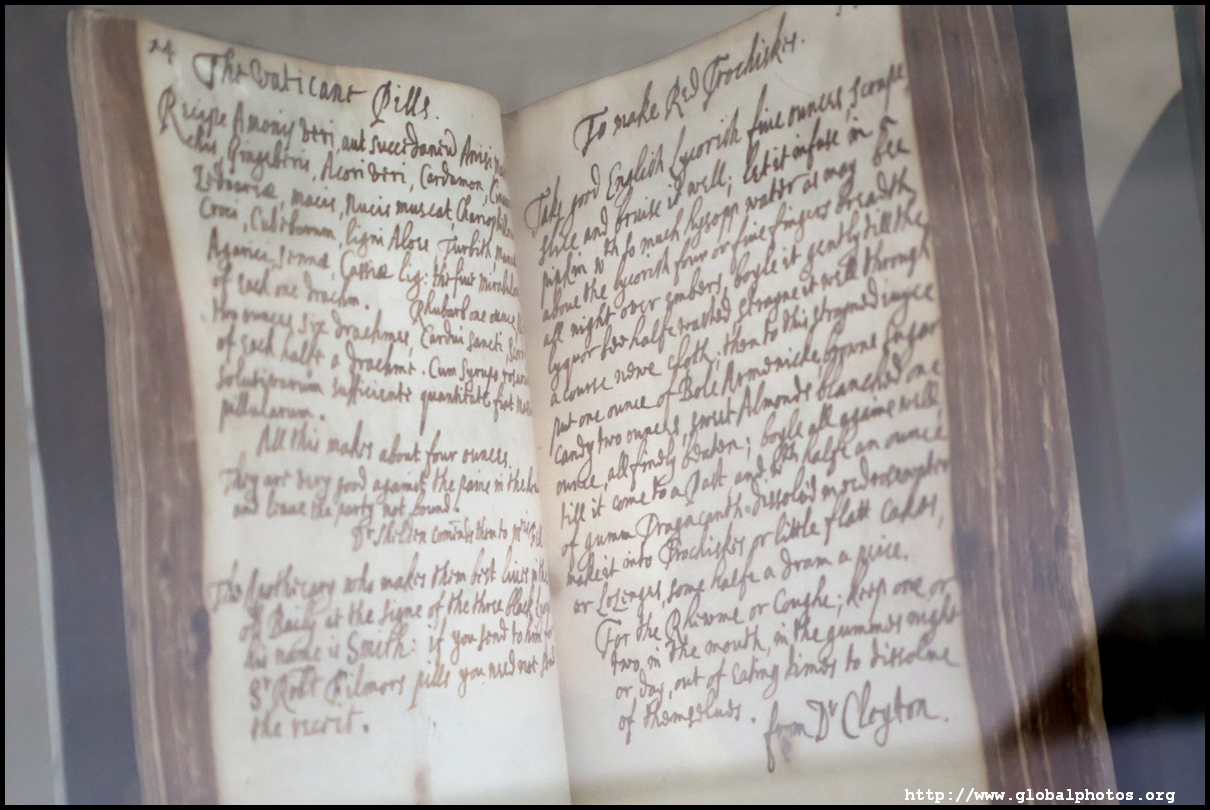 14
The Vaticane Pills.
Recipe Amomij veri, aut succedanei Anisi
chis Gingeberis, Acori veri, Cardamom,
Zedoariæ, macis, Nucis muscat,
Croci, Cubebarum, ligni Aloes Turbith,
Agarici, Sennæ, Cassiæ lig: the five
of each one drachm. Rhubarb one ounce
two ounces six drachmes, Cardui sancti,
of each halfe a drachme. Cum Syrupo
solutivarum sufficiente quantitate fiat
pillularum.
All this makes about four ounces.
They are very good against the paine in the
and leave the party not bound.
Dr
The Apothecary who makes them best lives in the
old Baily at the signe of the three black
his name is Smith: if you send to him for
Sr Robt Kilmors pills you need not
the receit.
To make Red Trochiskes.
Take good English Lycorish five ounces, scrape,
slice and bruise it well; let it infuse in a
pipkin wth so much hysopp water as may bee
above the lycorish four or five fingers breadth
all night over embers, boyle it gently till the
lyquor bee halfe wasted, strayne it well through
a course newe cloth; then to this strayned iuyce
put one ounce of Bole Armenicke, browne sugar
candy two ounces, sweet Almonds blanched one
ounce, all finely beaten; boyle all againe well,
till it come to a Past and wth halfe an ounce
of gumm Dragacanth dissolvd in redrosewater
make it into Trochiskes or little flatt cakes,
or Lozenges, some halfe a dram a piece.
For the Rhewme or Coughe; keep one or
two, in the mouth, in the gummes night
or day, out of Eating times to dissolve
of themselves. from Dr Cleyton.
http://www.globalphotos.org